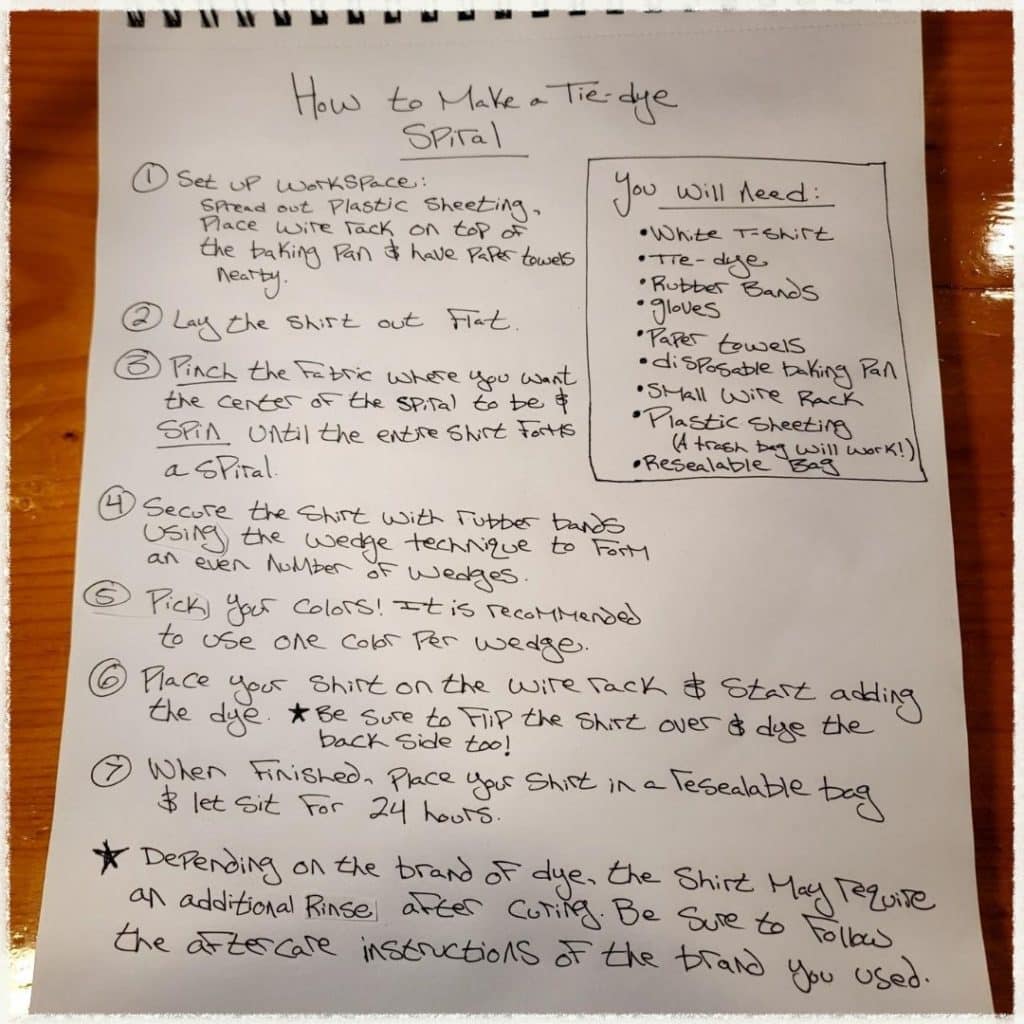 How to Make a Tie-dye
Spiral
① Set up workspace:
Spread out Plastic Sheeting,
Place wire rack on top of
the baking Pan & have Paper towels
nearby.
② Lay the shirt out Flat.
③ Pinch the Fabric where you want
the center of the spiral to be &
SPIN until the entire shirt Forms
a spiral.
④ Secure the shirt with rubber bands
using the wedge technique to Form
an even number of wedges.
⑤ Pick your colors! It is recommended
to use one color Per wedge.
⑥ Place your shirt on the wire rack & Start adding
the dye. ★Be sure to Flip the shirt over & dye the
back side too!
⑦ When Finished, Place your shirt in a resealable bag
& let sit For 24 hours.
★ Depending on the brand of dye, the shirt May require
an additional Rinse after curing. Be Sure to Follow
the aftercare instructions of the brand you used.
You Will Need:
•White T-shirt
•Tie-dye
•Rubber Bands
•gloves
•Paper towels
•disposable baking Pan
•Small Wire Rack
•Plastic Sheeting
(A trash bag will work!)
•Resealable Bag